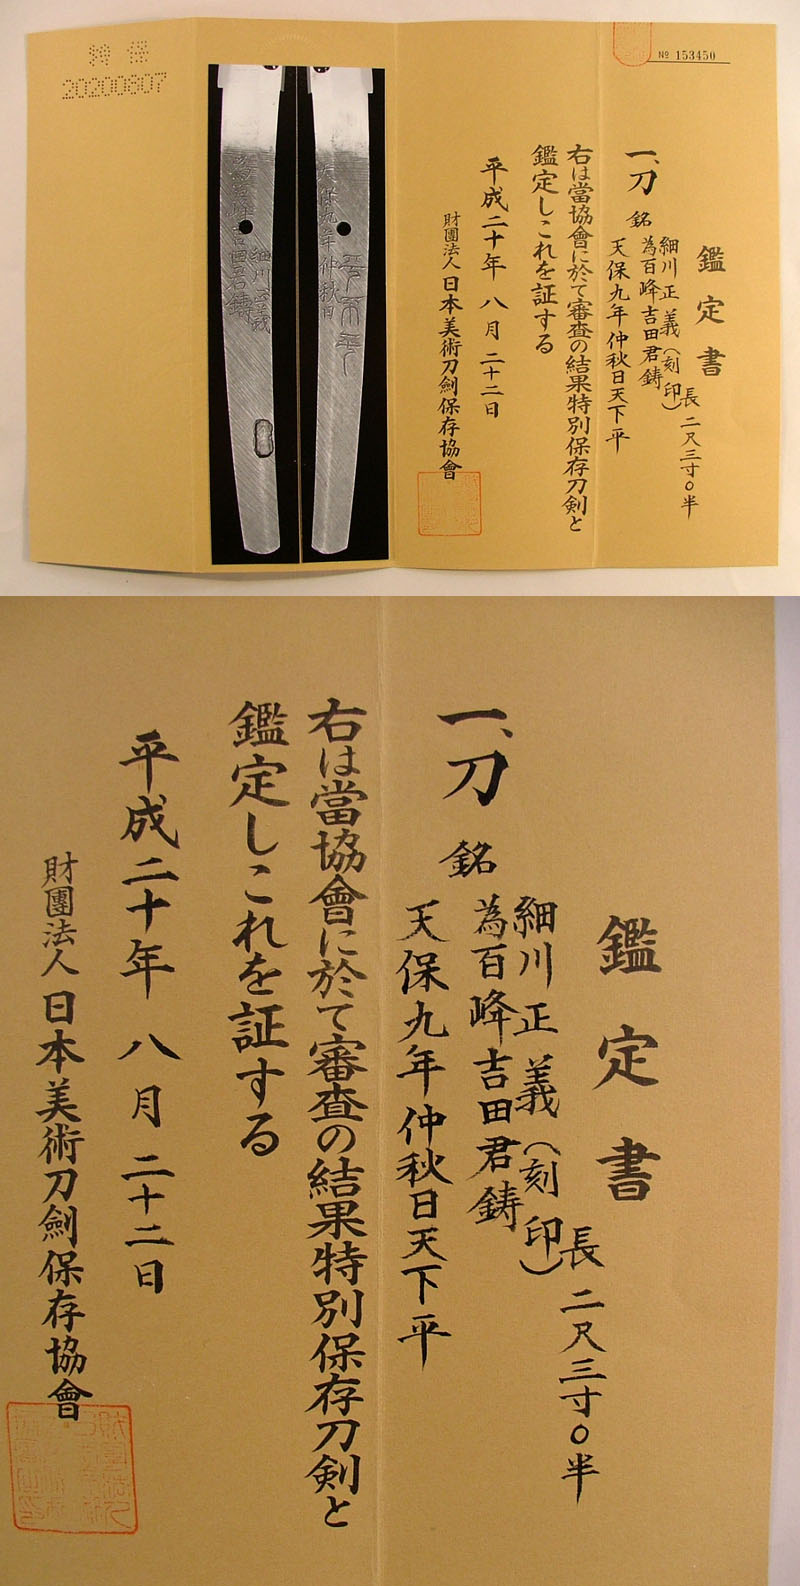 特保
20200807
№ 153450
鑑定書
長 二尺三寸〇半
一、刀 銘
細川正義（刻印）
為百峰吉田君鋳
天保九年仲秋日天下平
右は當協會に於て審査の結果特別保存刀剣と
鑑定しこれを証する
平成二十年 八月 二十二日
財團法人 日本美術刀劍保存協會
細川正義
為百峰吉田君鋳
天保九年仲秋日
天下平
鑑定書
長 二尺三寸〇半
一、刀 銘
細川正義（刻印）
為百峰吉田君鋳
天保九年仲秋日天下平
右は當協會に於て審査の結果特別保存刀剣と
鑑定しこれを証する
平成二十年 八月 二十二日
財團法人 日本美術刀劍保存協會